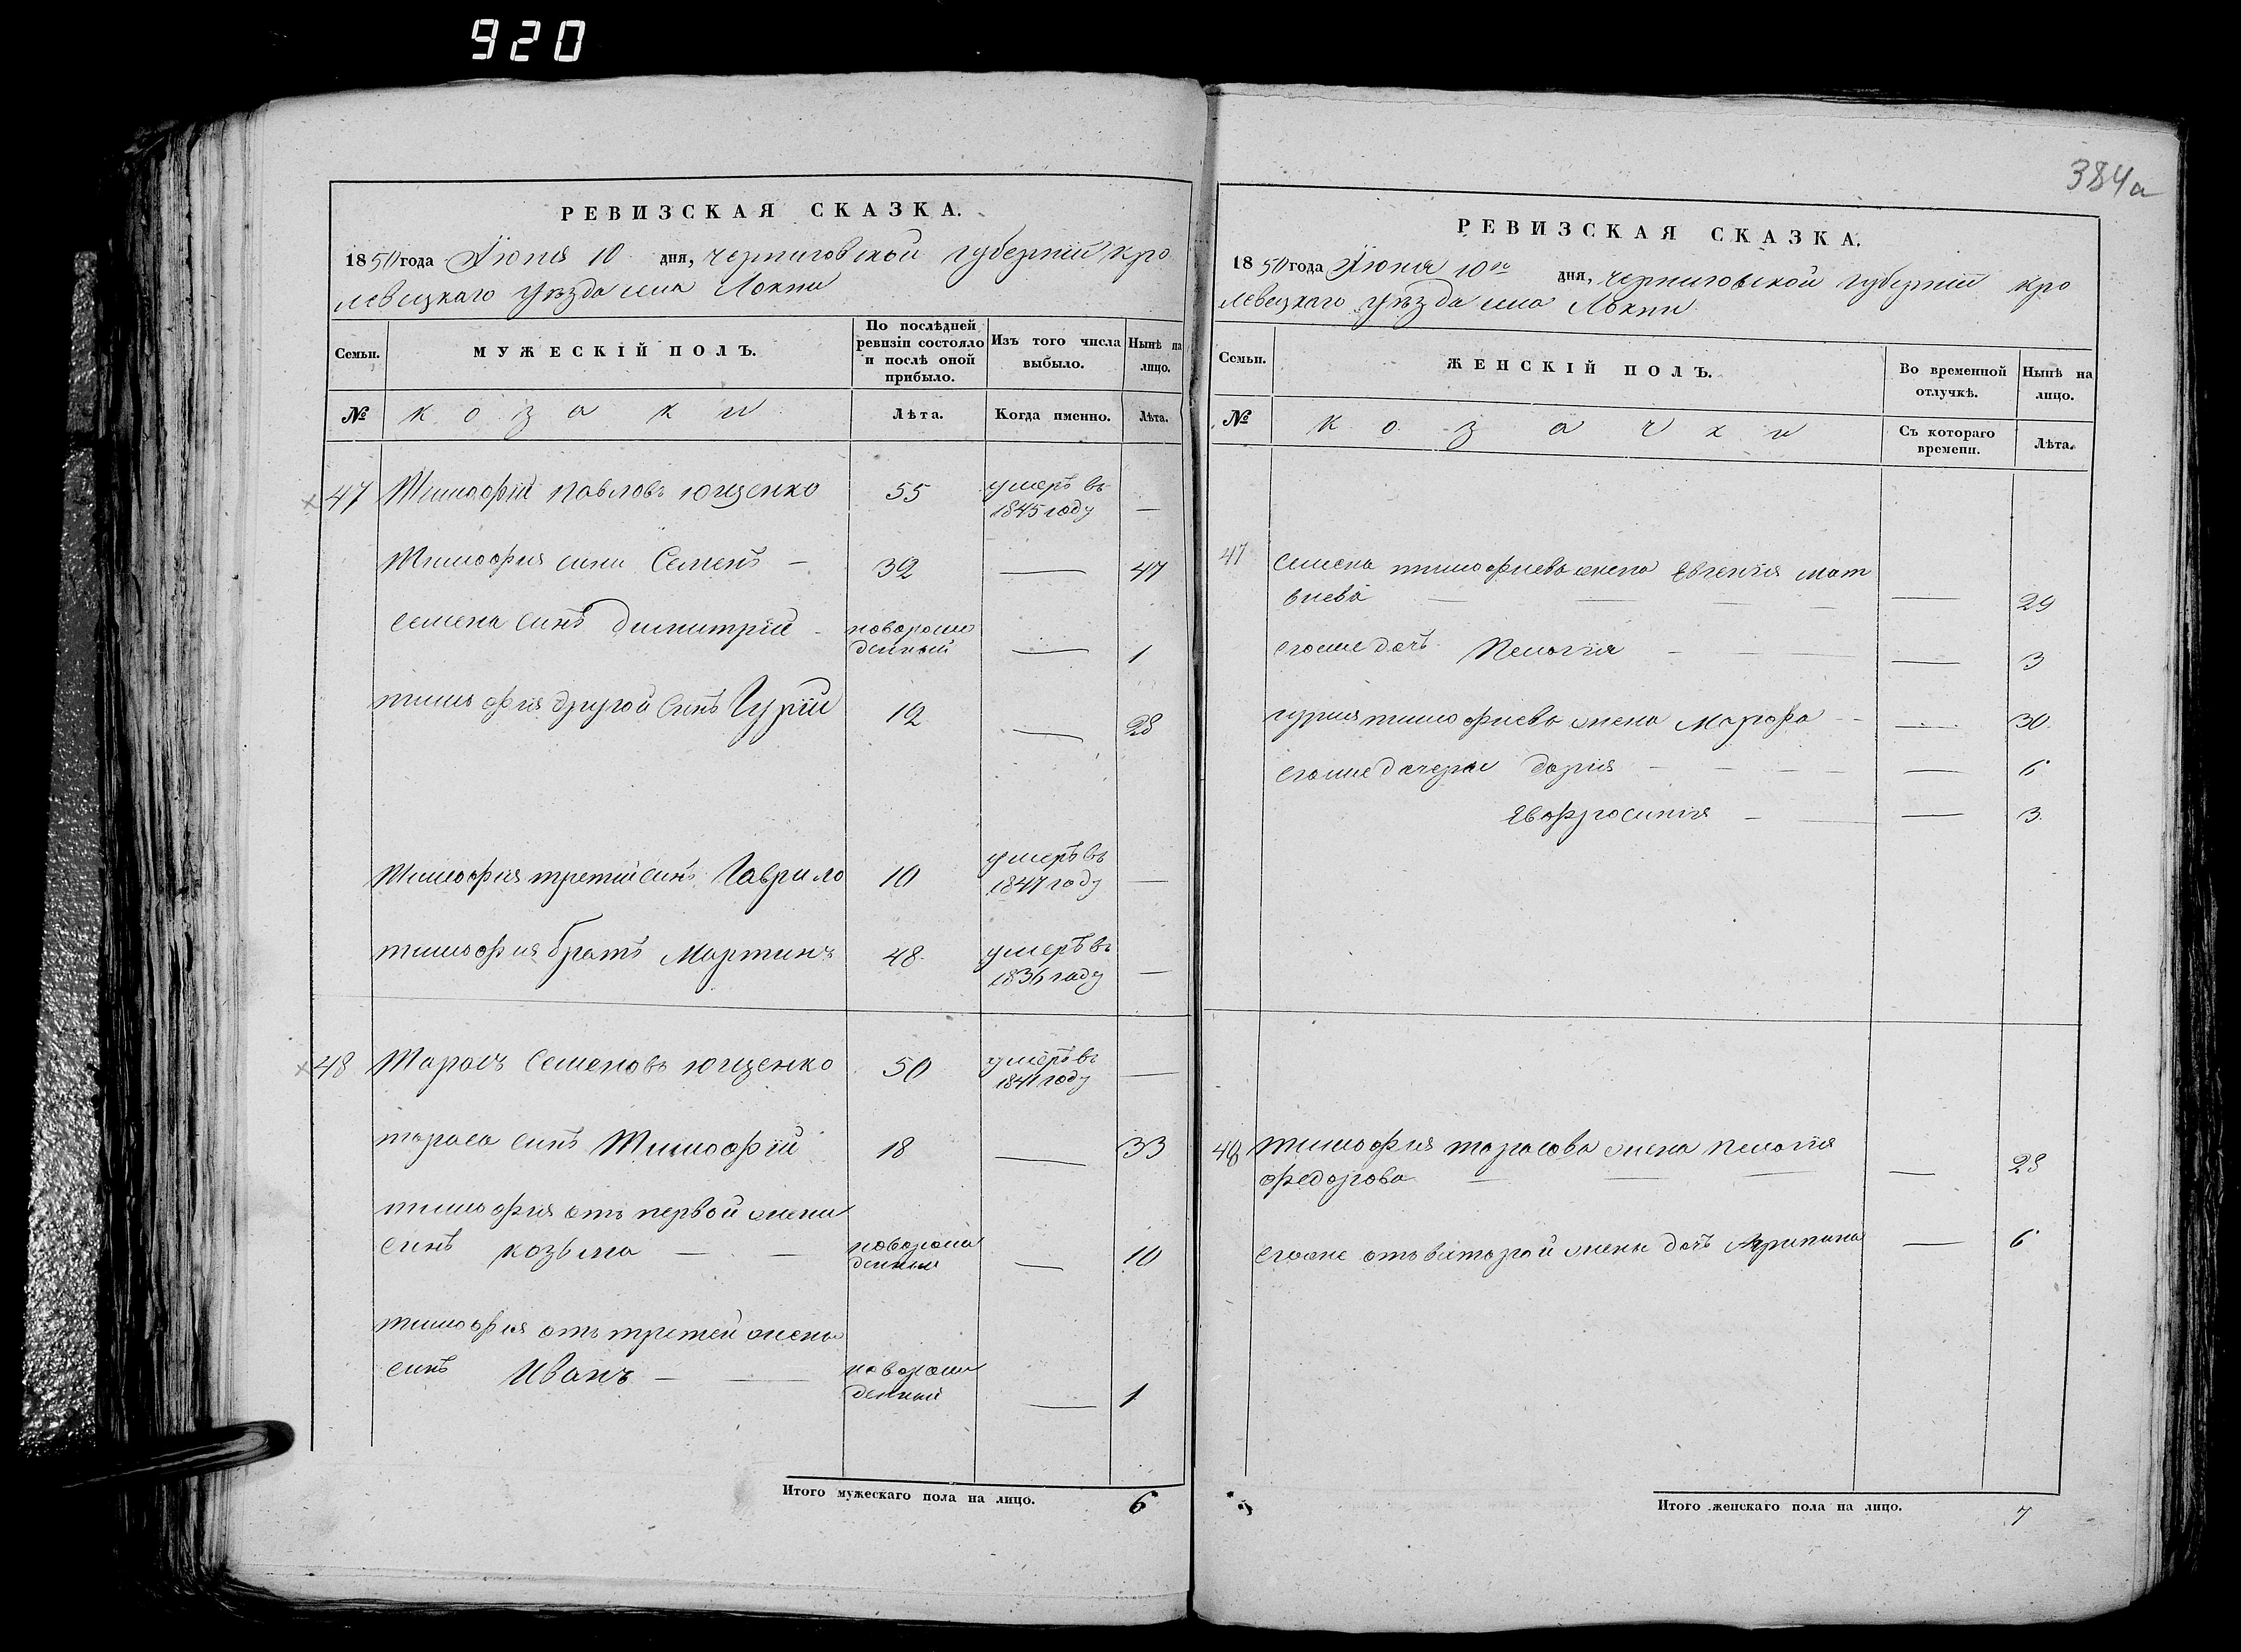 920
384а
РЕВИЗСКАЯ СКАЗКА.
1850 года Июня 10 дня, Черниговской губерніи Кро
левецкаго уѣзда села Локни
Семьи.
МУЖЕСКІЙ ПОЛЪ.
По послѣдней ревизіи состояло и послѣ оной прибыло.
Изъ того числа выбыло.
Нынѣ на лицо.
№
козаки
Лѣта.
Когда именно.
Лѣта.
47 Тимофій Павловъ Ющенко 55 умеръ въ
1845 году —
Тимофія сини Семенъ — 32 — 47
Семена синъ Димитрій новорож
денный — 1
Тимофія другой синъ Гурій 12 — 28
Тимофія третій синъ Гаврило 10 умеръ въ
1847 году —
Тимофія братъ Мартинъ 48 умеръ въ
1836 году —
48 Тарасъ Семеновъ Ющенко 50 умеръ въ
1841 году —
Тараса синъ Тимофій 18 — 33
Тимофія отъ первой жени
синъ Козьма — — новорож
денный — 10
Тимофія отъ третей жены
синъ Иванъ — — новорож
денный — 1
Итого мужескаго пола на лицо. 6
РЕВИЗСКАЯ СКАЗКА.
1850 года Июня 10го дня, Черниговской губерніи Кро
левецкаго уѣзда села Локни
Семьи.
ЖЕНСКІЙ ПОЛЪ.
Во временной отлучкѣ.
Нынѣ на лицо.
№
козачки
Съ котораго времени.
Лѣта.
47 Семена Тимофиева жена Евгенія Мат
виева — — — — — 29
егоже дочъ Пелагія — — — 3
Гурия Тимофиева жена Марфа — — — 30
егоже дочери Дария — — — — — 6
Евфросинія — — — 3
48 Тимофия Тарасова жена Пелагія
Федорова — — — — 28
егоже отъ второй жены дочъ Агрипина — 6
Итого женскаго пола на лицо. 7